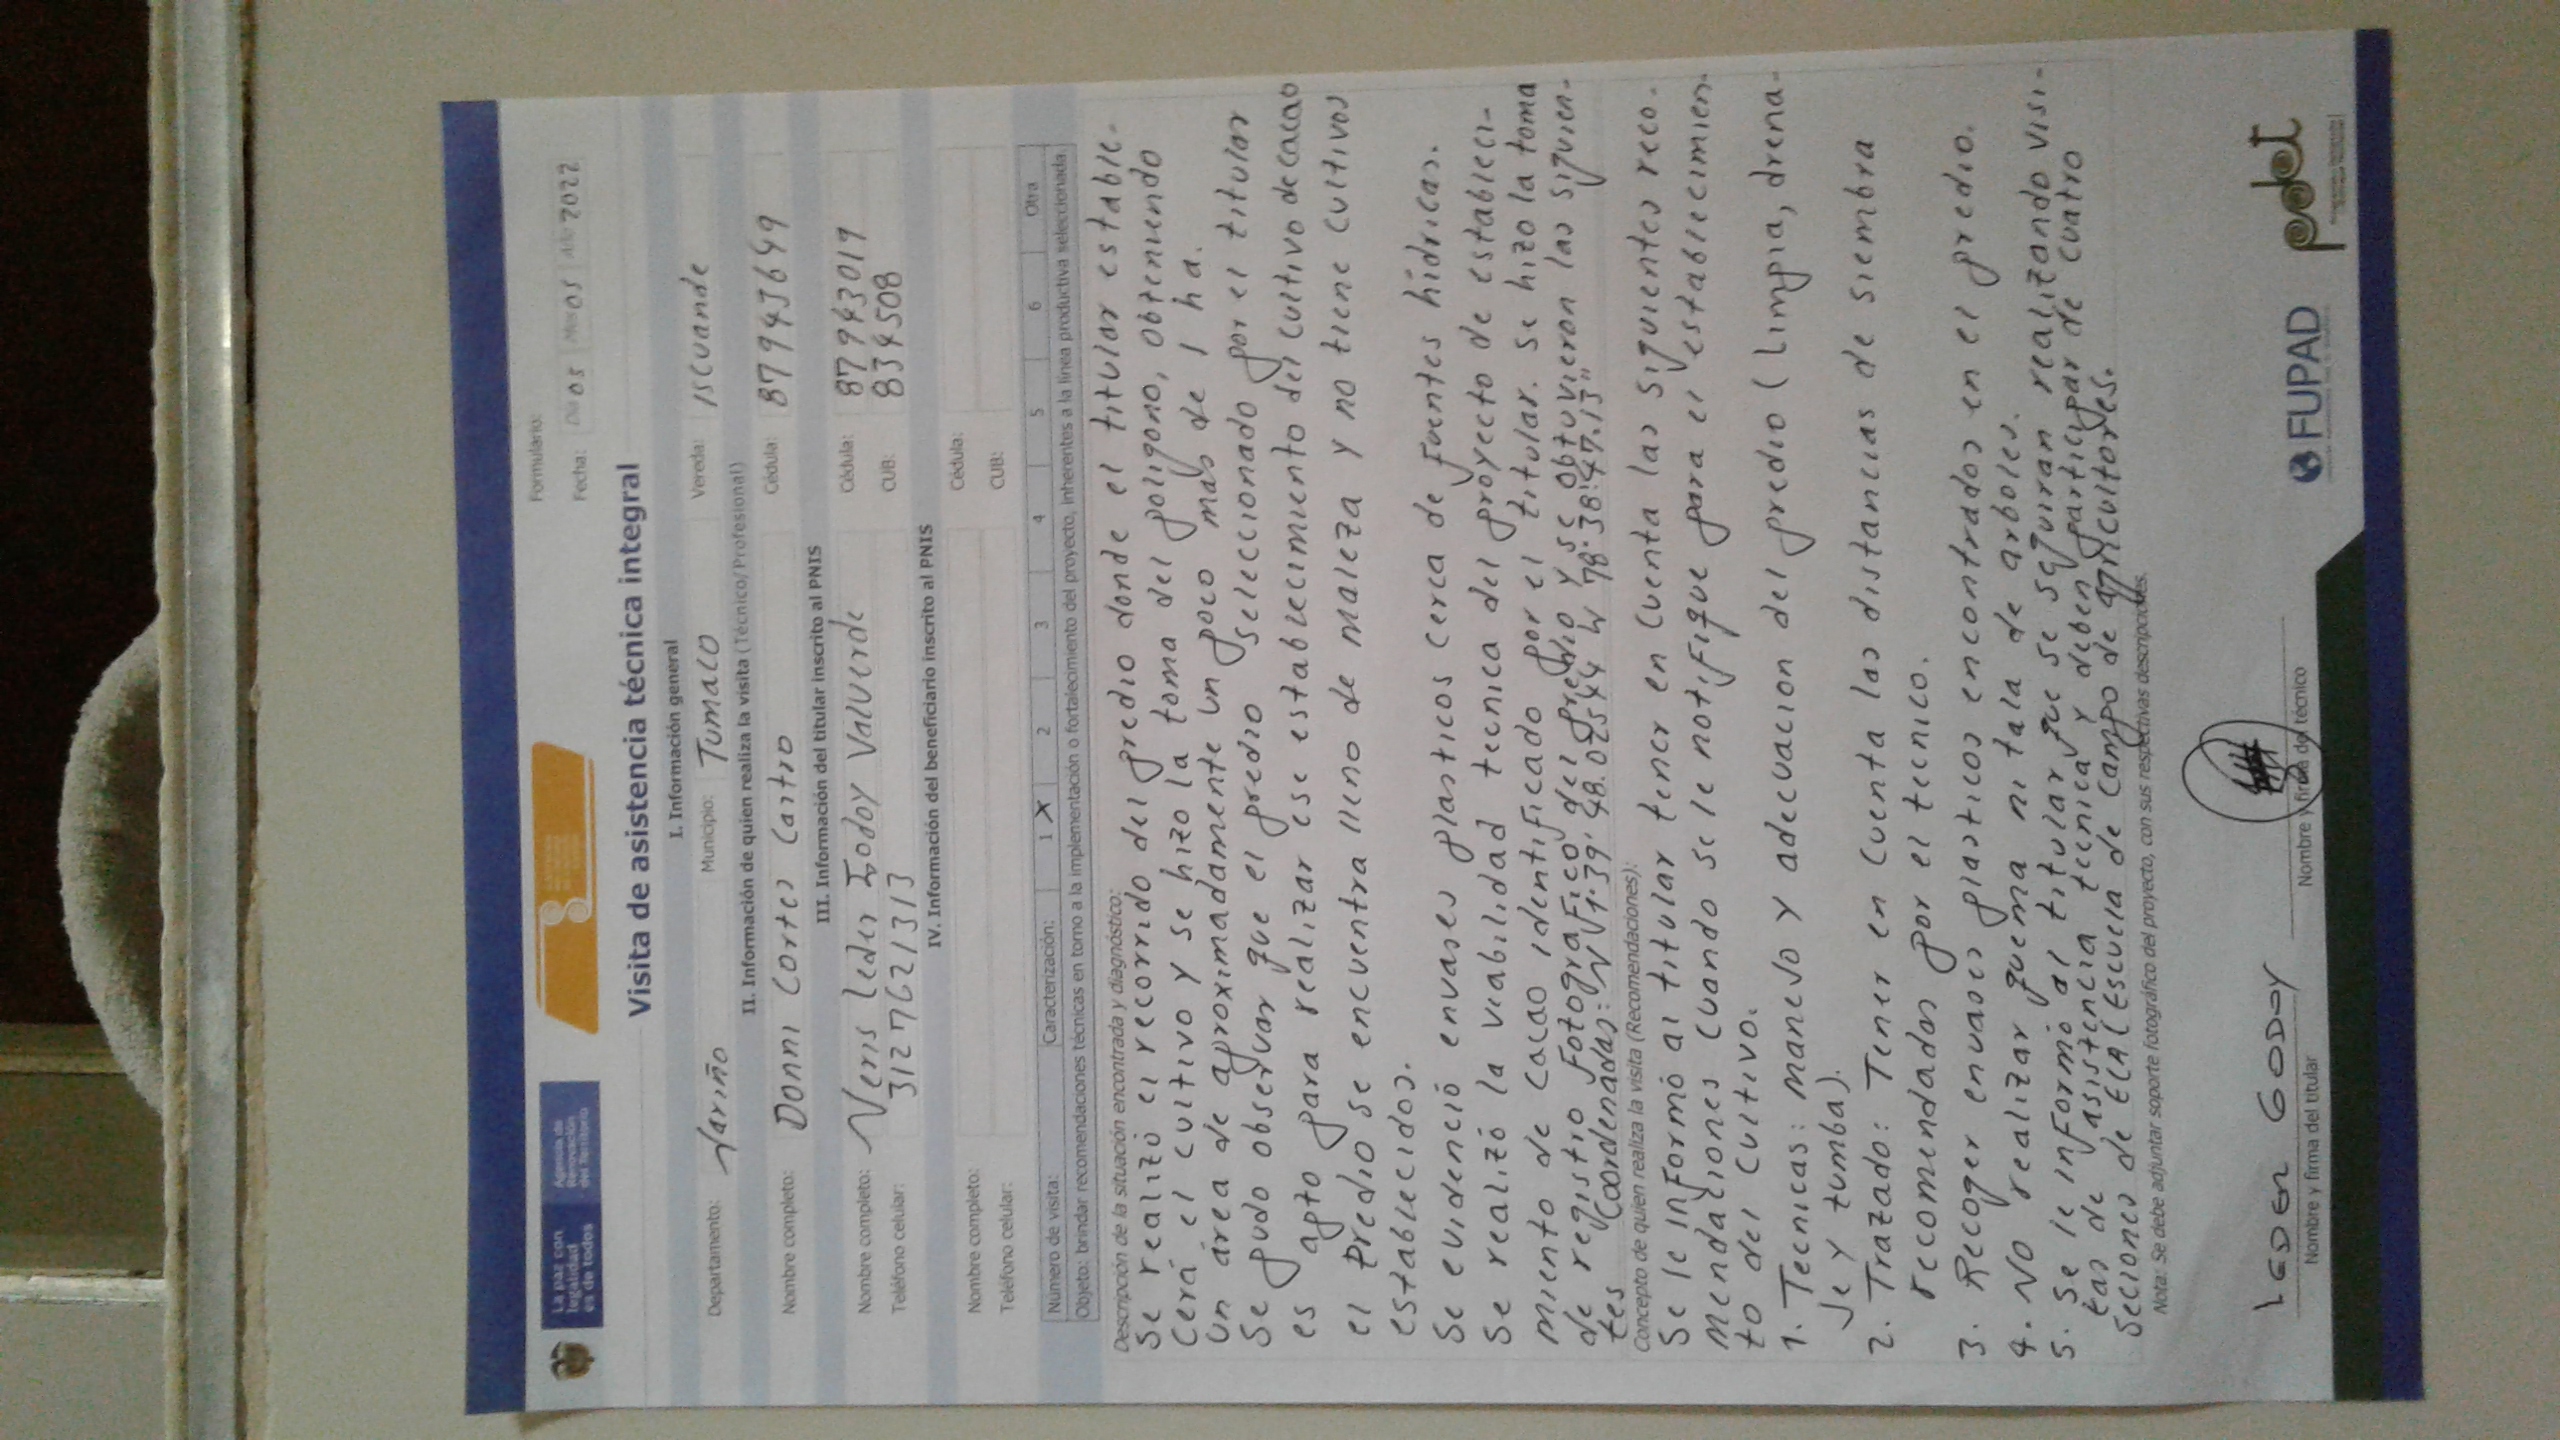 La paz con
legalidad
es de todos
Agencia de
Renovación
del Territorio
Formulario:
Fecha: Día 05 Mes 05 Año 2022
Visita de asistencia técnica integral
I. Información general
Departamento: Nariño Municipio: Tumaco Vereda: Iscuande
II. Información de quien realiza la visita (Técnico/Profesional)
Nombre completo: Donni Cortes Castro Cédula: 87943649
III. Información del titular inscrito al PNIS
Nombre completo: Veris Leder Godoy Valverde Cédula: 87943019
Teléfono celular: 3127621313 CUB: 834508
IV. Información del beneficiario inscrito al PNIS
Nombre completo: Cédula:
Teléfono celular: CUB:
Número de visita: Caracterización: 1 X 2 3 4 5 6 Otra
Objeto: brindar recomendaciones técnicas en torno a la implementación o fortalecimiento del proyecto, inherentes a la línea productiva seleccionada.
Descripción de la situación encontrada y diagnóstico:
Se realizó el recorrido del predio donde el titular estable-
cerá el cultivo y se hizo la toma del poligono, obteniendo
un área de aproximadamente un poco mas de 1 ha.
Se pudo observar que el predio seleccionado por el titular
es apto para realizar ese establecimiento del cultivo de cacao
el Predio se encuentra lleno de maleza y no tiene cultivos
establecidos.
Se evidenció envases plasticos cerca de fuentes hídricas.
Se realizó la viabilidad tecnica del proyecto de estableci-
miento de cacao identificado por el titular. Se hizo la toma
de registro fotografico del predio y se obtuvieron las siguien-
tes Coordenadas: N 1°39' 48.02544 W 78°38'47.13"
Concepto de quien realiza la visita (Recomendaciones):
Se le informó al titular tener en cuenta las siguientes reco-
mendaciones cuando se le notifique para el establecimien-
to del cultivo.
1. Tecnicas: manejo y adecuacion del predio (limpia, drena-
je y tumba).
2. Trazado: Tener en cuenta las distancias de siembra
recomendadas por el tecnico.
3. Recoger envases plasticos encontrados en el predio.
4. No realizar quema ni tala de arboles.
5. Se le informó al titular que se seguiran realizando visi-
tas de asistencia tecnica y deben participar de cuatro
Seciones de ECA (Escuela de Campo de agricultores.
Nota: Se debe adjuntar soporte fotográfico del proyecto, con sus respectivas descripciones.
LEDER GODOY
Nombre y firma del titular
Nombre y firma del técnico
FUPAD
pdet